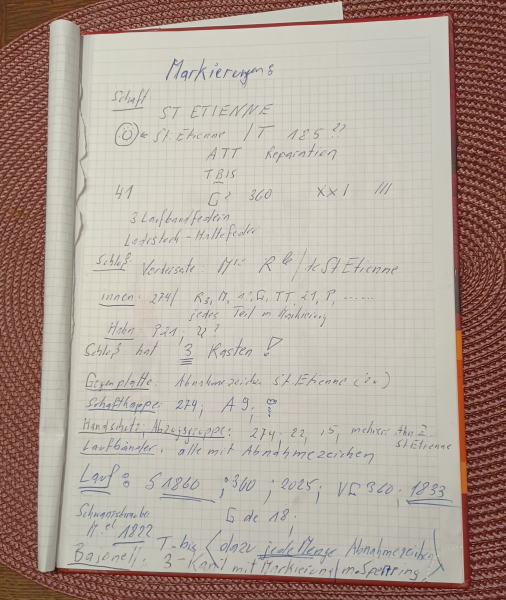 Markierungen:
Schaft
ST ETIENNE
Ü ← St. Etienne / T 185 ??
ATT Reparation
TBIS
41 G? 360 XXI III
3 Laufbandfedern
Ladestock-Haltefeder
Schloß: Vorderseite: Mre Rle / de St Etienne
innen: 274/ R3, M, 1?G, TT, 21, P, ......
jedes Teil m Markierung
Hahn: P21; U?
Schloß hat 3 Kasten!
Gegenplatte: Abnahmezeichen St. Etienne
Schaftkappe: 274; A 9;
Handschutz, Abzugsgruppe: 274, 22, 5, mehrere
St Etienne
Laufbänder: alle mit Abnahmezeichen
Lauf: S 1860 ; 360 ; 2025; VC 360; 1833
Schwanzschraube: G de 18;
M.el 1822 T-bis / dazu jede Menge Abnahmezeichen
Bajonett: 3-Kant mit Markierung/m Sperring